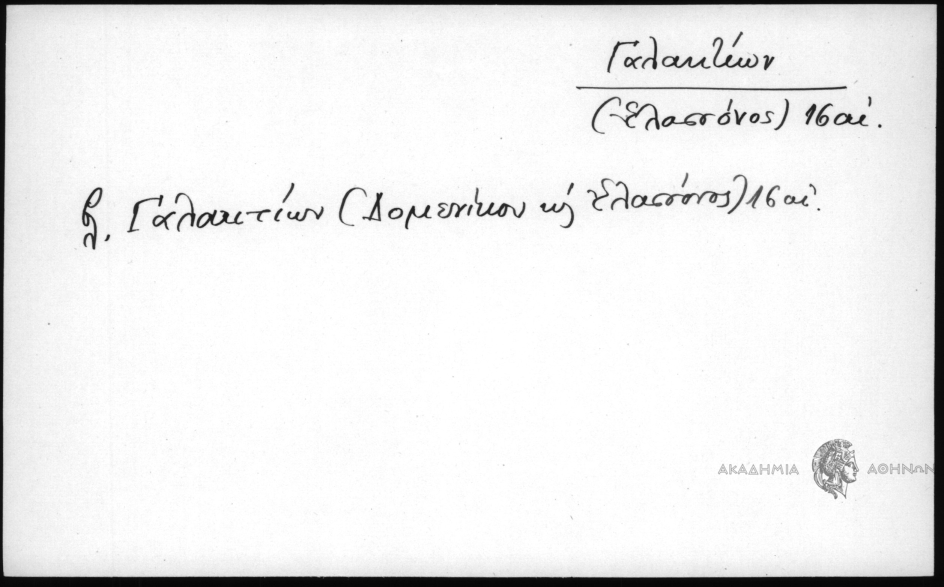 Γαλακτίων
(Ἐλασσόνος) 16 αἰ.
βλ. Γαλακτίων (Δομενίκου κ̀ Ἐλασσόνος) 16 αἰ.
ΑΚΑΔΗΜΙΑ ΑΘΗΝΩΝ